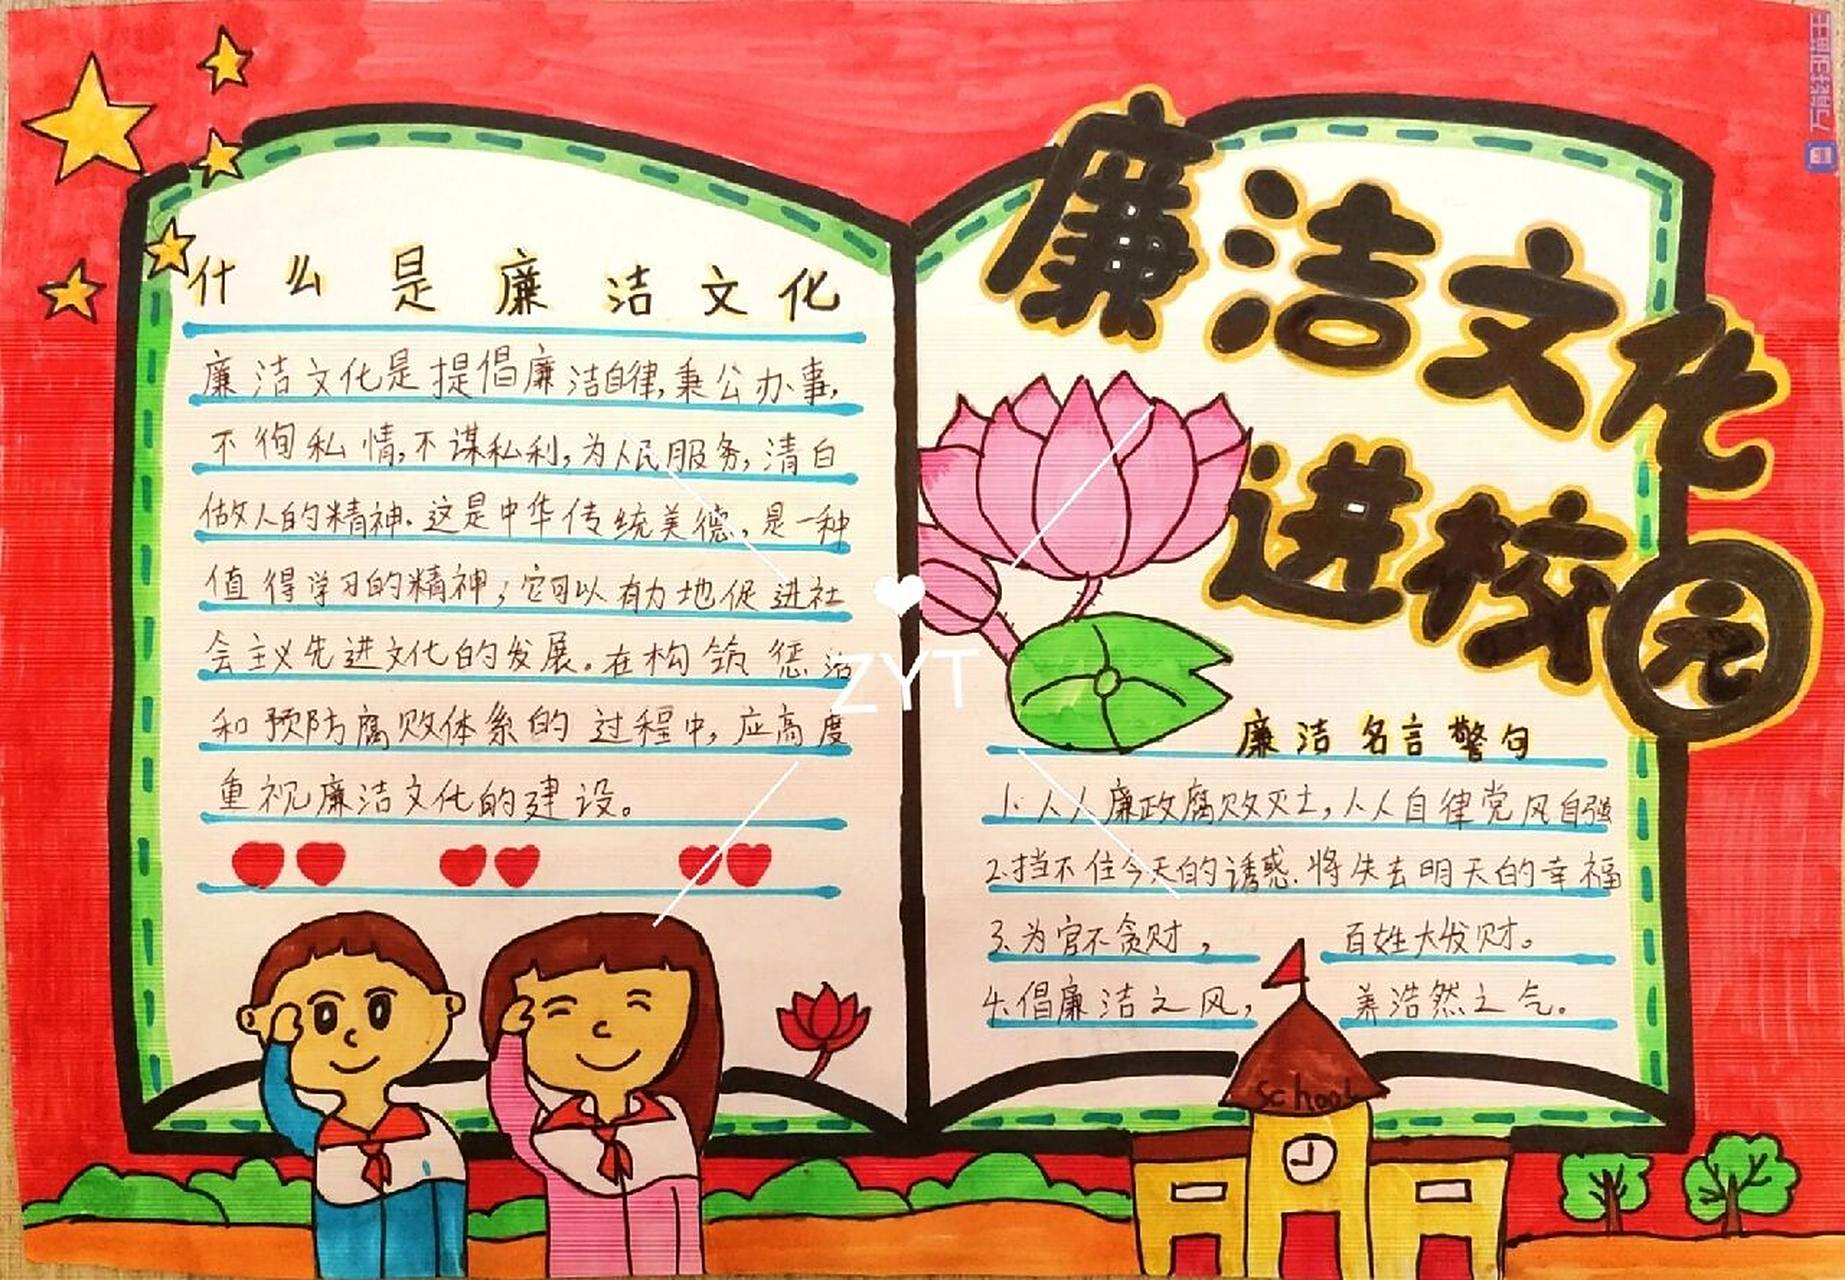 廉洁文化
进校园
什么是廉洁文化
廉洁文化是提倡廉洁自律,秉公办事,
不徇私情,不谋私利,为人民服务,清白
做人的精神.这是中华传统美德,是一种
值得学习的精神;它可以有力地促进社
会主义先进文化的发展。在构筑惩治
和预防腐败体系的过程中,应高度
重视廉洁文化的建设。
廉洁名言警句
1.人人廉政腐败灭亡,人人自律党风自强
2.挡不住今天的诱惑.将失去明天的幸福
3.为官不贪财,百姓大发财。
4.倡廉洁之风,养浩然之气。
School
ZYT
万能扫描王